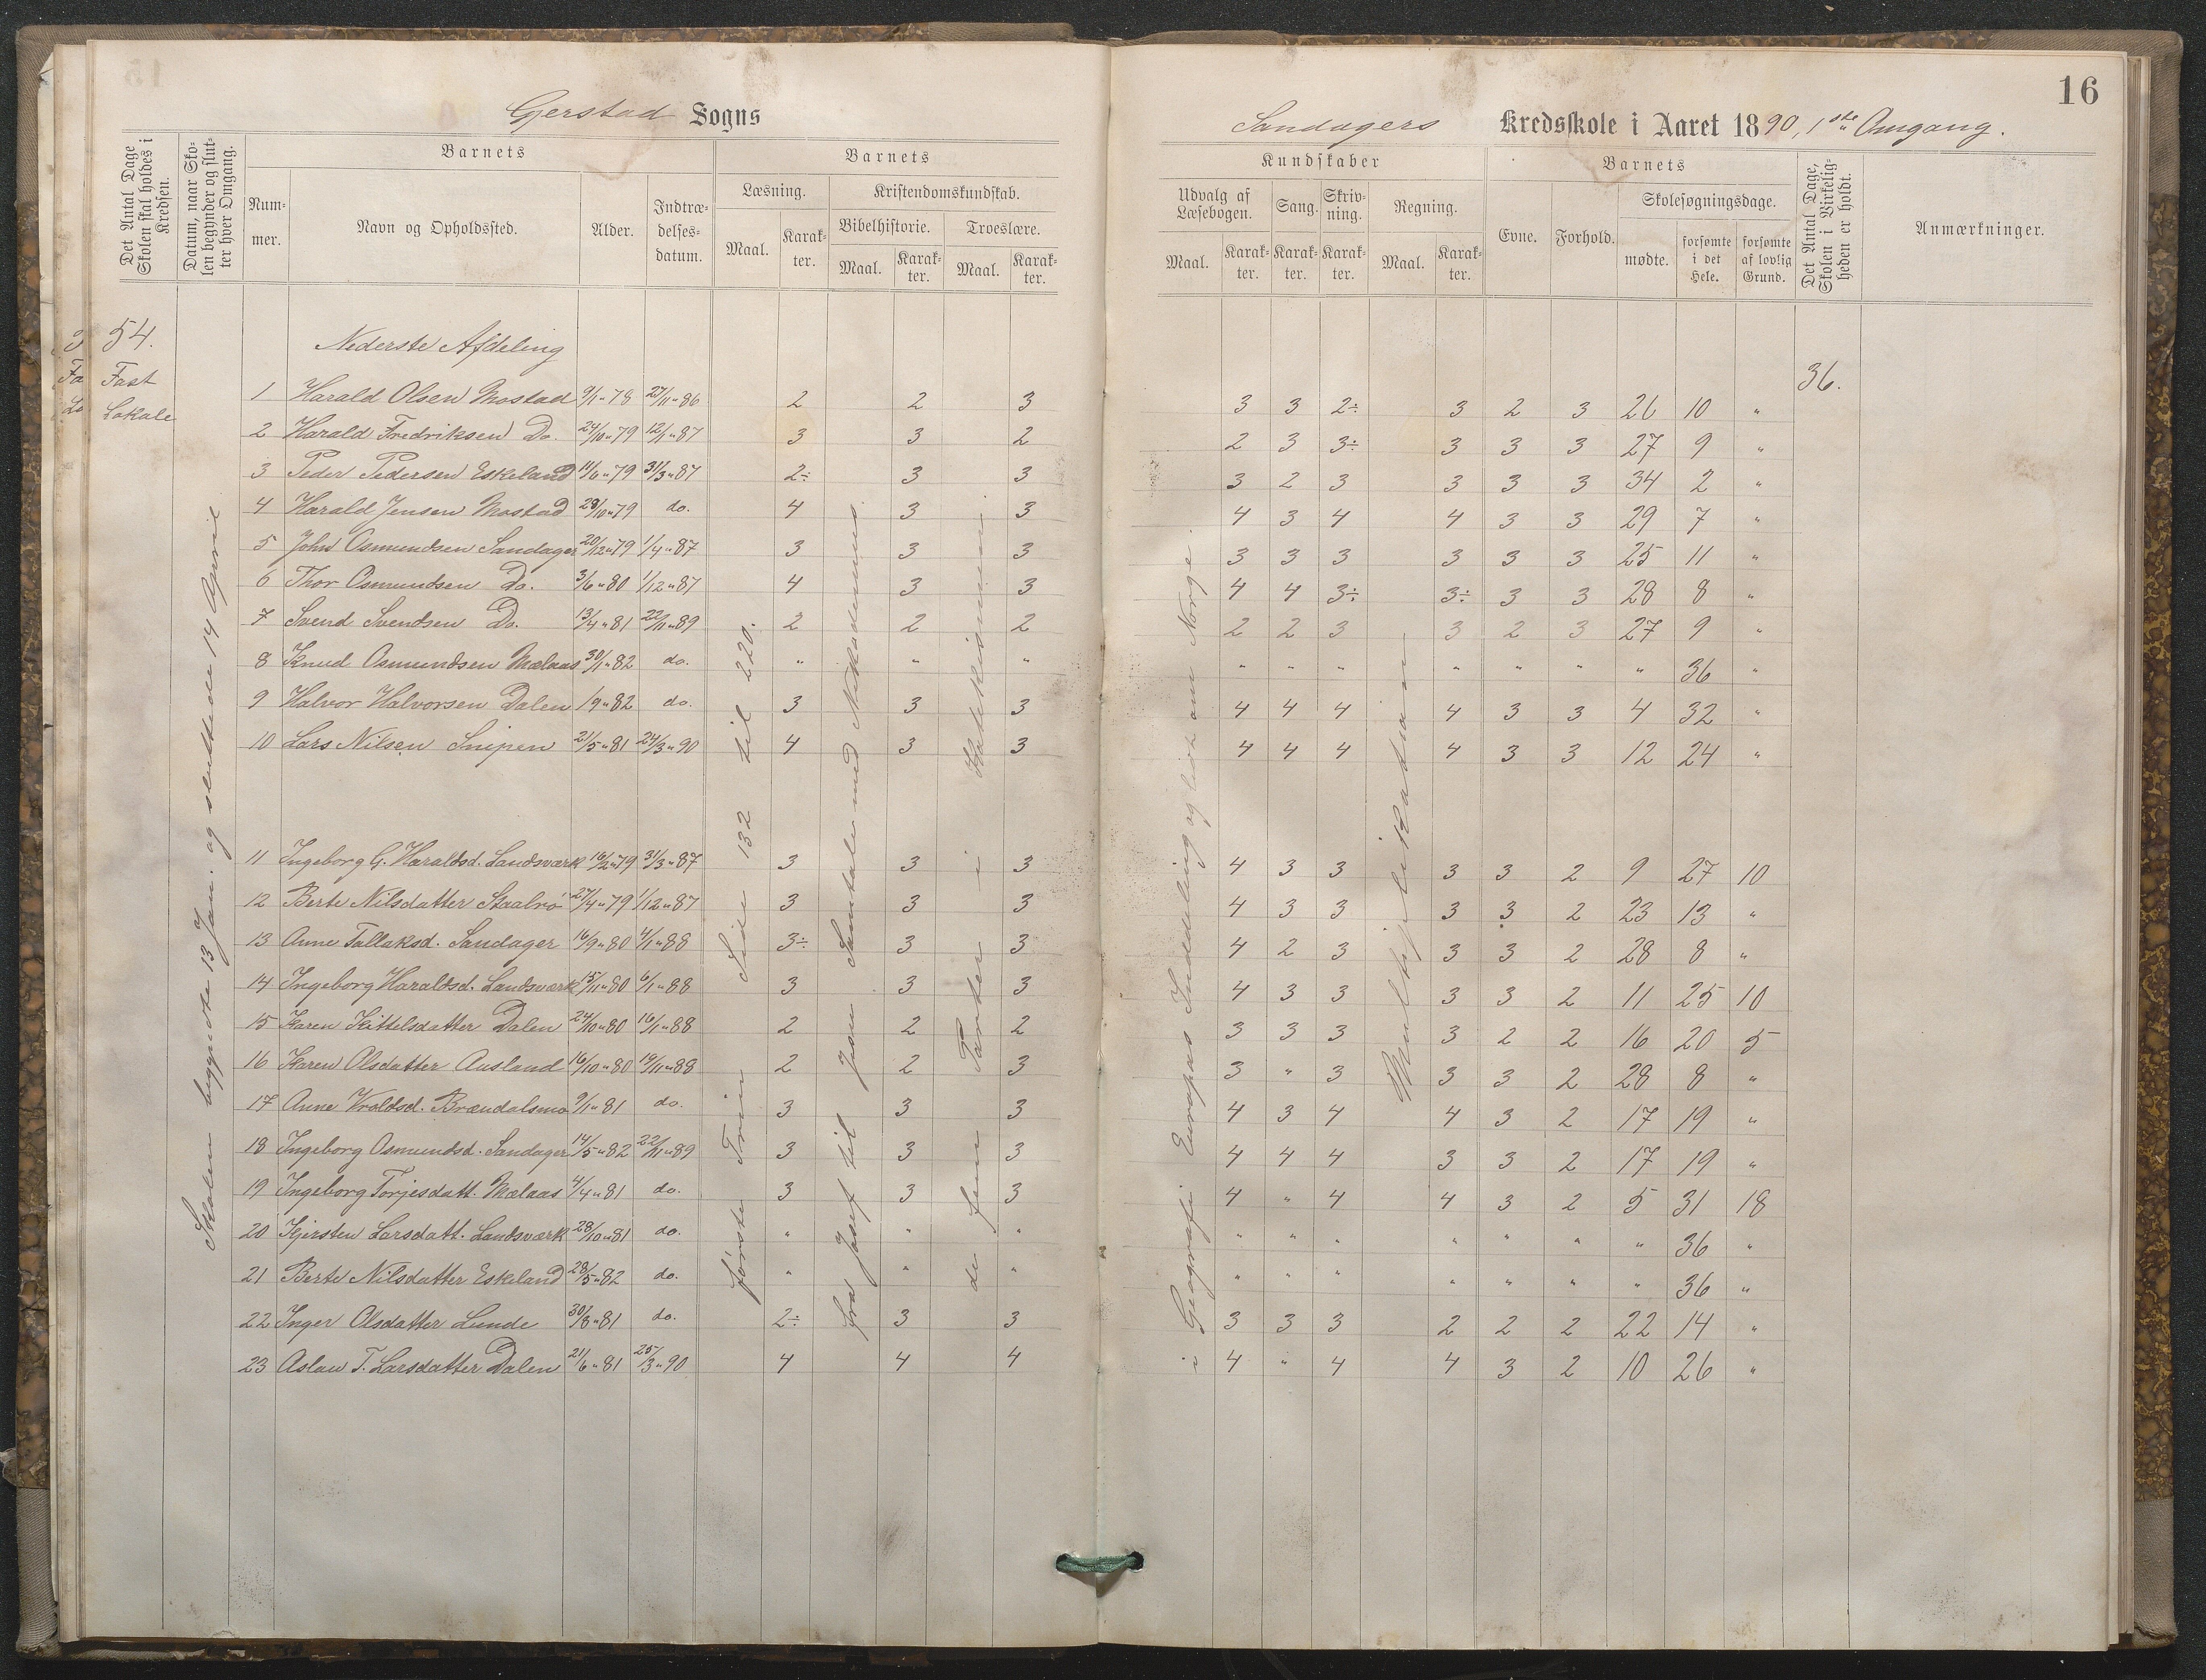 16
Gerstad Sogns
Sandagers Kredsskole i Aaret 1890, 1ste Omgang.
Det Antal Dage Skolen skal holdes i Kredsen.
Datum, naar Skolen begynder og slutter hver Omgang.
Barnets
Nummer.
Navn og Opholdssted.
Alder.
Indtrædelsesdatum.
Barnets
Læsning.
Maal. Karakter.
Kristendomskundskab.
Bibelhistorie.
Maal. Karakter.
Troeslære.
Maal. Karakter.
Kundskaber
Udvalg af Læsebogen.
Maal. Karakter.
Sang.
Karakter.
Skrivning.
Karakter.
Regning.
Maal. Karakter.
Barnets
Evne. Forhold.
Skolesøgningsdage.
mødte. forsømte i det Hele. forsømte af lovlig Grund.
Det Antal Dage, Skolen i Virkeligheden er holdt.
Anmærkninger.
54.
Fast
Lokale
Skolen begyndte 13 Jan. og sluttede 14 April
Nederste Afdeling
36.
1 Harald Olsen Mostad 9/1 " 78 27/11 " 86 2 2 3 3 3 2÷ 3 2 3 26 10 "
2 Harald Fredriksen Do. 24/10 " 79 12/1 " 87 3 3 2 2 3 3÷ 3 3 3 27 9 "
3 Peder Pedersen Eskeland 14/6 " 79 31/3 " 87 2÷ 3 3 3 2 3 3 3 3 34 2 "
4 Harald Jensen Mostad 29/10 " 79 do. 4 3 3 4 3 4 4 3 3 29 7 "
5 John Osmundsen Sandager 20/12 " 79 1/4 " 87 3 3 3 3 3 3 3 3 3 25 11 "
6 Thor Osmundsen Do. 3/6 " 80 1/12 " 87 4 3 3 4 4 3÷ 3÷ 3 3 28 8 "
7 Svend Svendsen Do. 13/4 " 81 22/11 " 89 2 2 2 2 2 3 3 2 3 27 9 "
8 Knud Osmundsen Mælaas 30/1 " 82 do. " " " " " " " " " " 36 "
9 Halvor Halvorsen Dalen 1/9 " 82 do. 3 3 3 4 4 4 4 3 3 4 32 "
10 Lars Nilsen Snipen 21/5 " 81 24/3 " 90 4 3 3 4 4 4 4 3 3 12 24 "
11 Ingeborg G. Haraldsd. Landsværk 16/2 " 79 31/3 " 87 3 3 3 4 3 3 3 3 2 9 27 10
12 Berte Nilsdatter Staalrø 27/4 " 79 1/12 " 87 3 3 3 4 3 3 3 3 2 23 13 "
13 Anne Tallaksd. Sandager 16/9 " 80 4/1 " 88 3÷ 3 3 4 2 3 3 3 2 28 8 "
14 Ingeborg Haraldsd. Landsværk 15/11 " 80 6/1 " 88 3 3 3 4 3 3 3 3 2 11 25 10
15 Karen Kittelsdatter Dalen 24/10 " 80 16/1 " 88 2 2 2 3 3 3 3 2 2 16 20 5
16 Karen Olsdatter Ausland 16/10 " 80 19/11 " 88 2 2 3 3 " 3 3 3 2 28 8 "
17 Anne Vraldsd. Brændalsmo 9/1 " 81 do. 3 3 3 4 3 4 4 3 2 17 19 "
18 Ingeborg Osmundsd. Sandager 14/5 " 82 22/11 " 89 3 3 3 4 4 4 3 3 2 17 19 "
19 Ingeborg Torjesdatt. Mælaas 4/4 " 81 do. 3 3 3 4 " 4 4 3 2 5 31 18
20 Kjersten Larsdatt. Landsværk 28/10 " 81 do. " " " " " " " " " " 36 "
21 Berte Nilsdatter Eskeland 28/5 " 82 do. " " " " " " " " " " 36 "
22 Inger Olsdatter Lunde 30/8 " 81 do. 2÷ 3 3 3 3 3 2 2 2 22 14 "
23 Aslau T. Larsdatter Dalen 21/6 " 81 25/3 " 90 4 4 4 4 " 4 4 3 2 10 26 "
første Trin Side 132 til 220.
fra Josef til Jesu Samtale med Nikodemus.
de fem Parter i Katekismus.
i Geografi Europas Inddeling og lidt om Norge.
Multiplikation